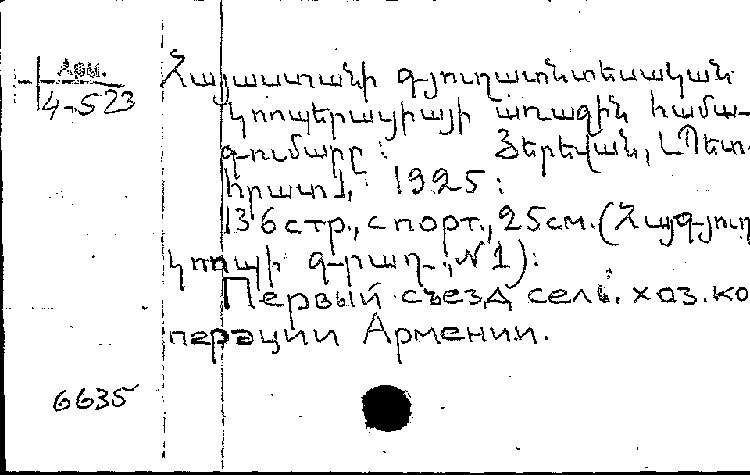 Арм.
4-523
Հայաստանի գյուղատնտեսական
կոոպերացիայի առաջին համա-
գումարը: Յերեվան, [Պետ-
հրատ], 1925:
136 стр., с порт., 25см. (Հայգյուղ
կոոպի գրադ., №1):
Первый съезд сель. хоз. ко
перации Армении.
6635